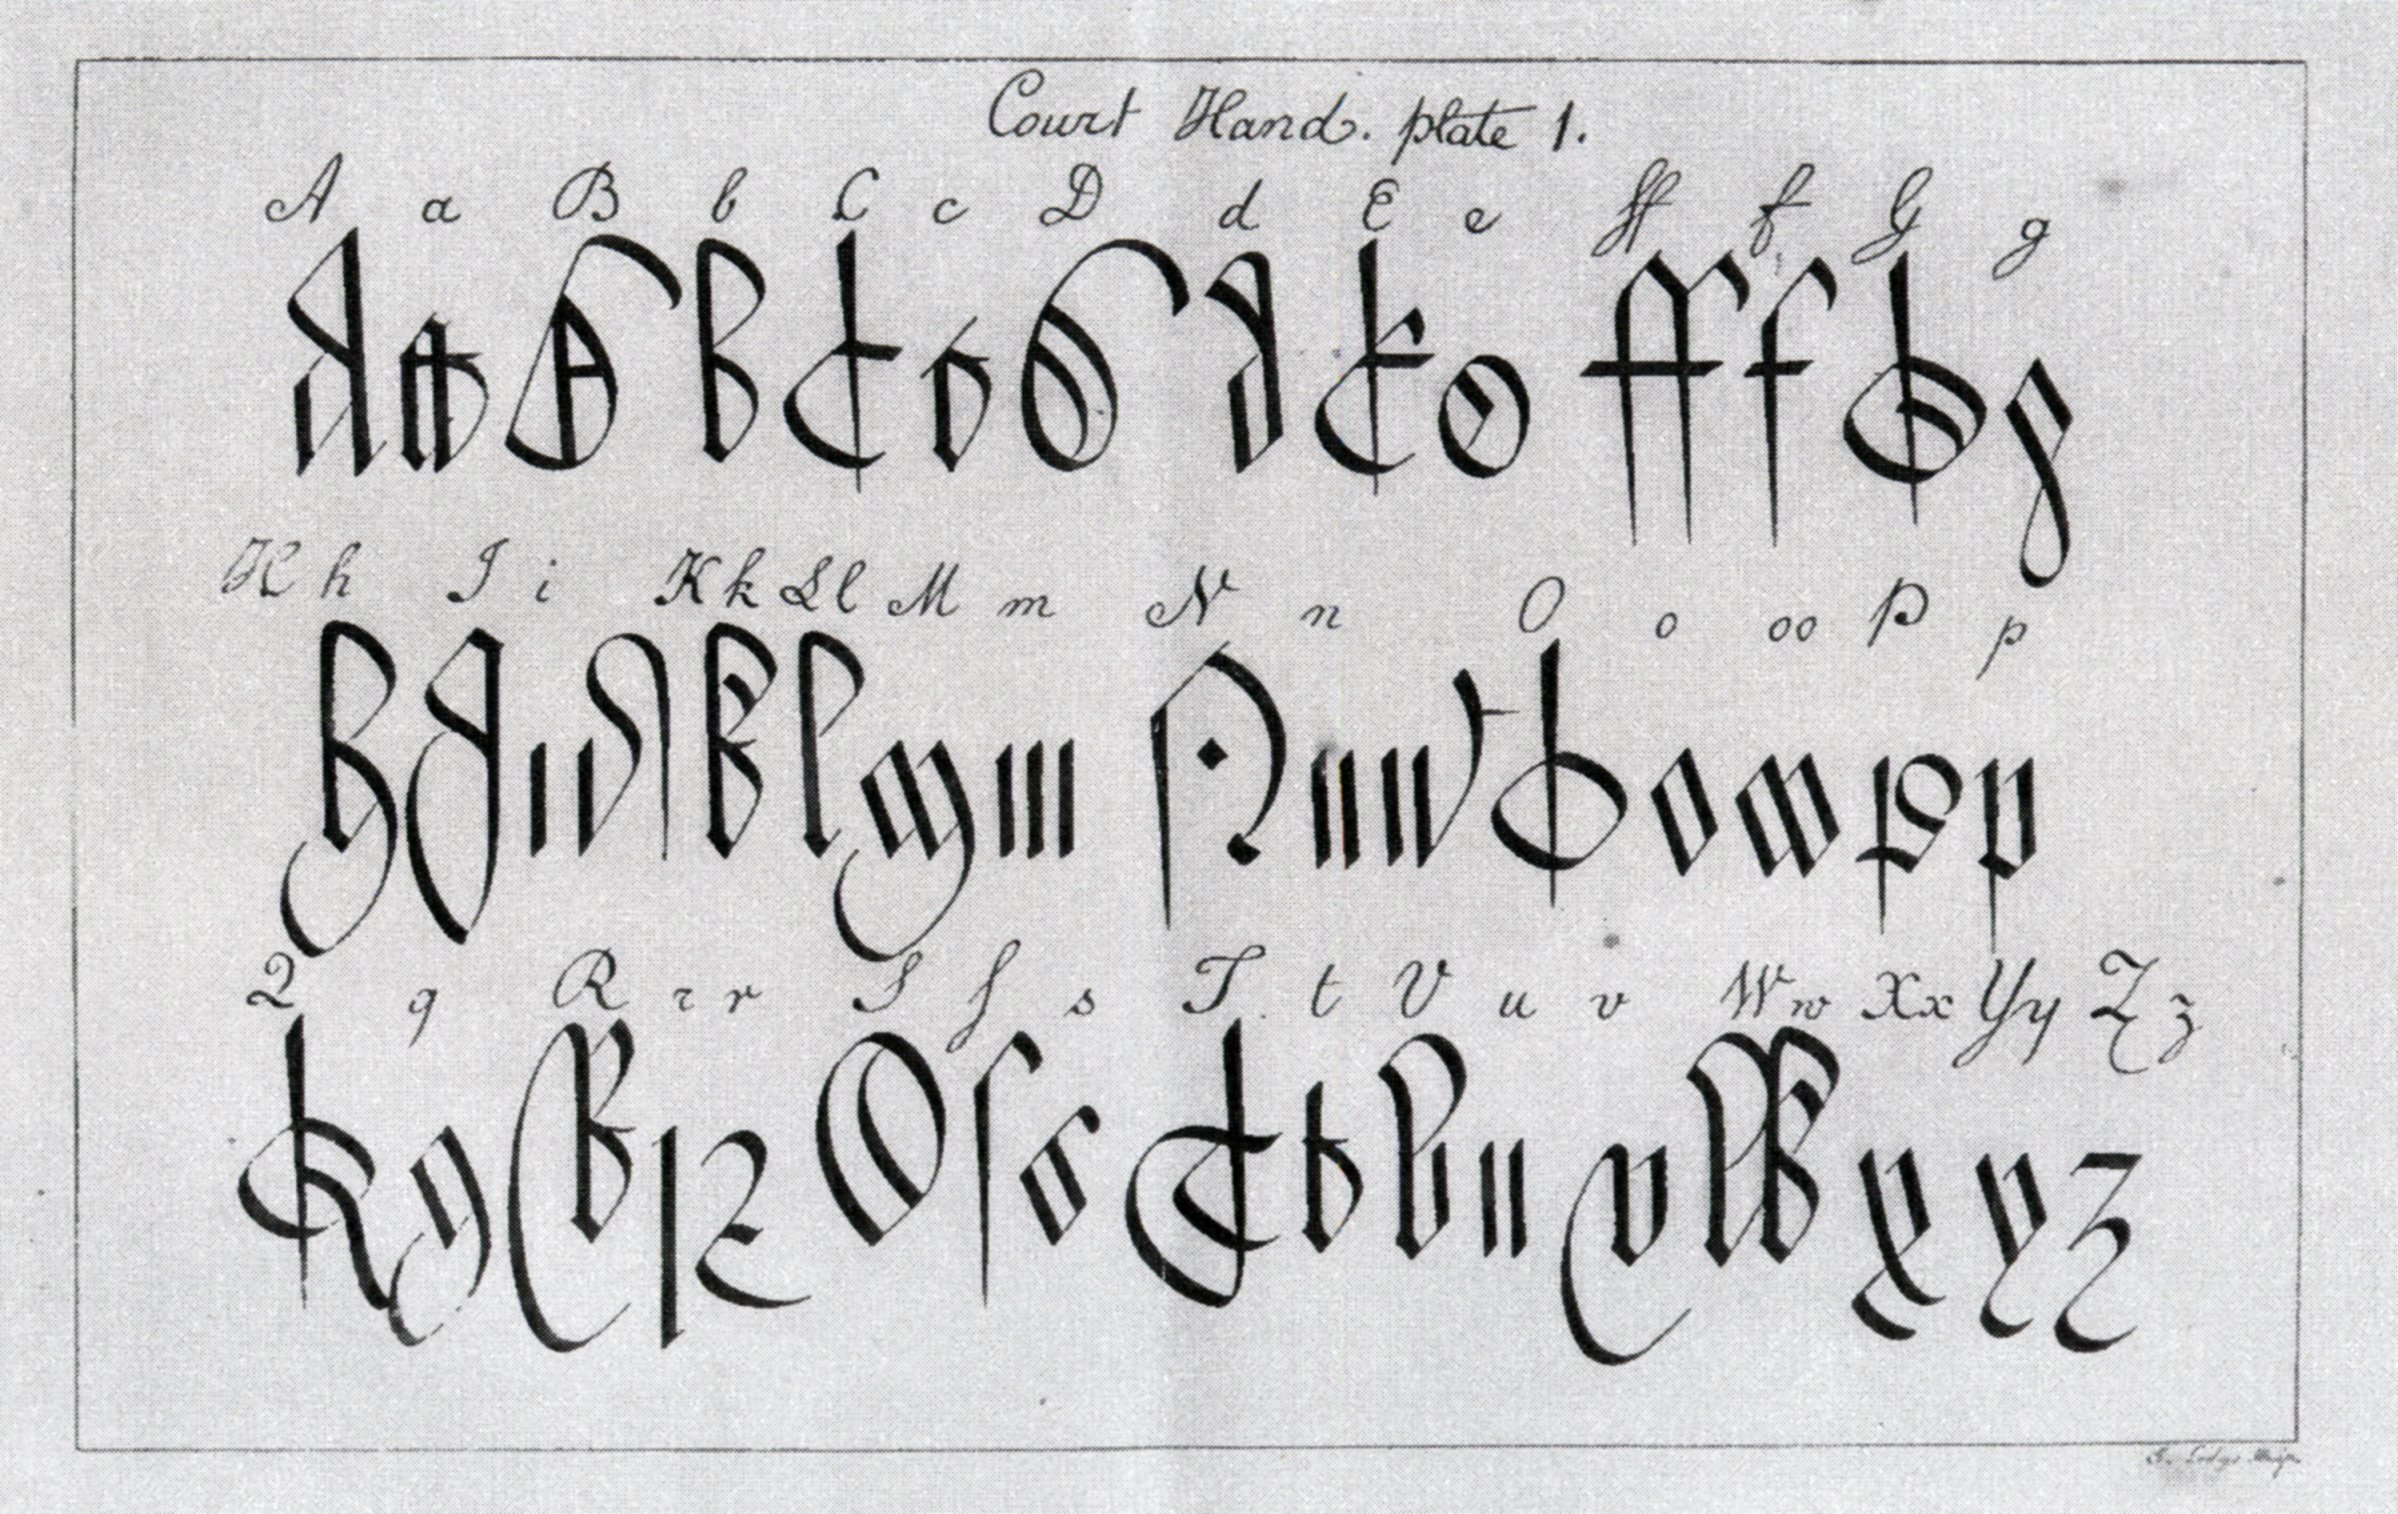 Court Hand. plate 1.
A a B b C c D d E e ff f G g
H h I i K k L l M m N n O o oo P p
Q q R r r S ſ s T t V u v W w X x Y y Z z